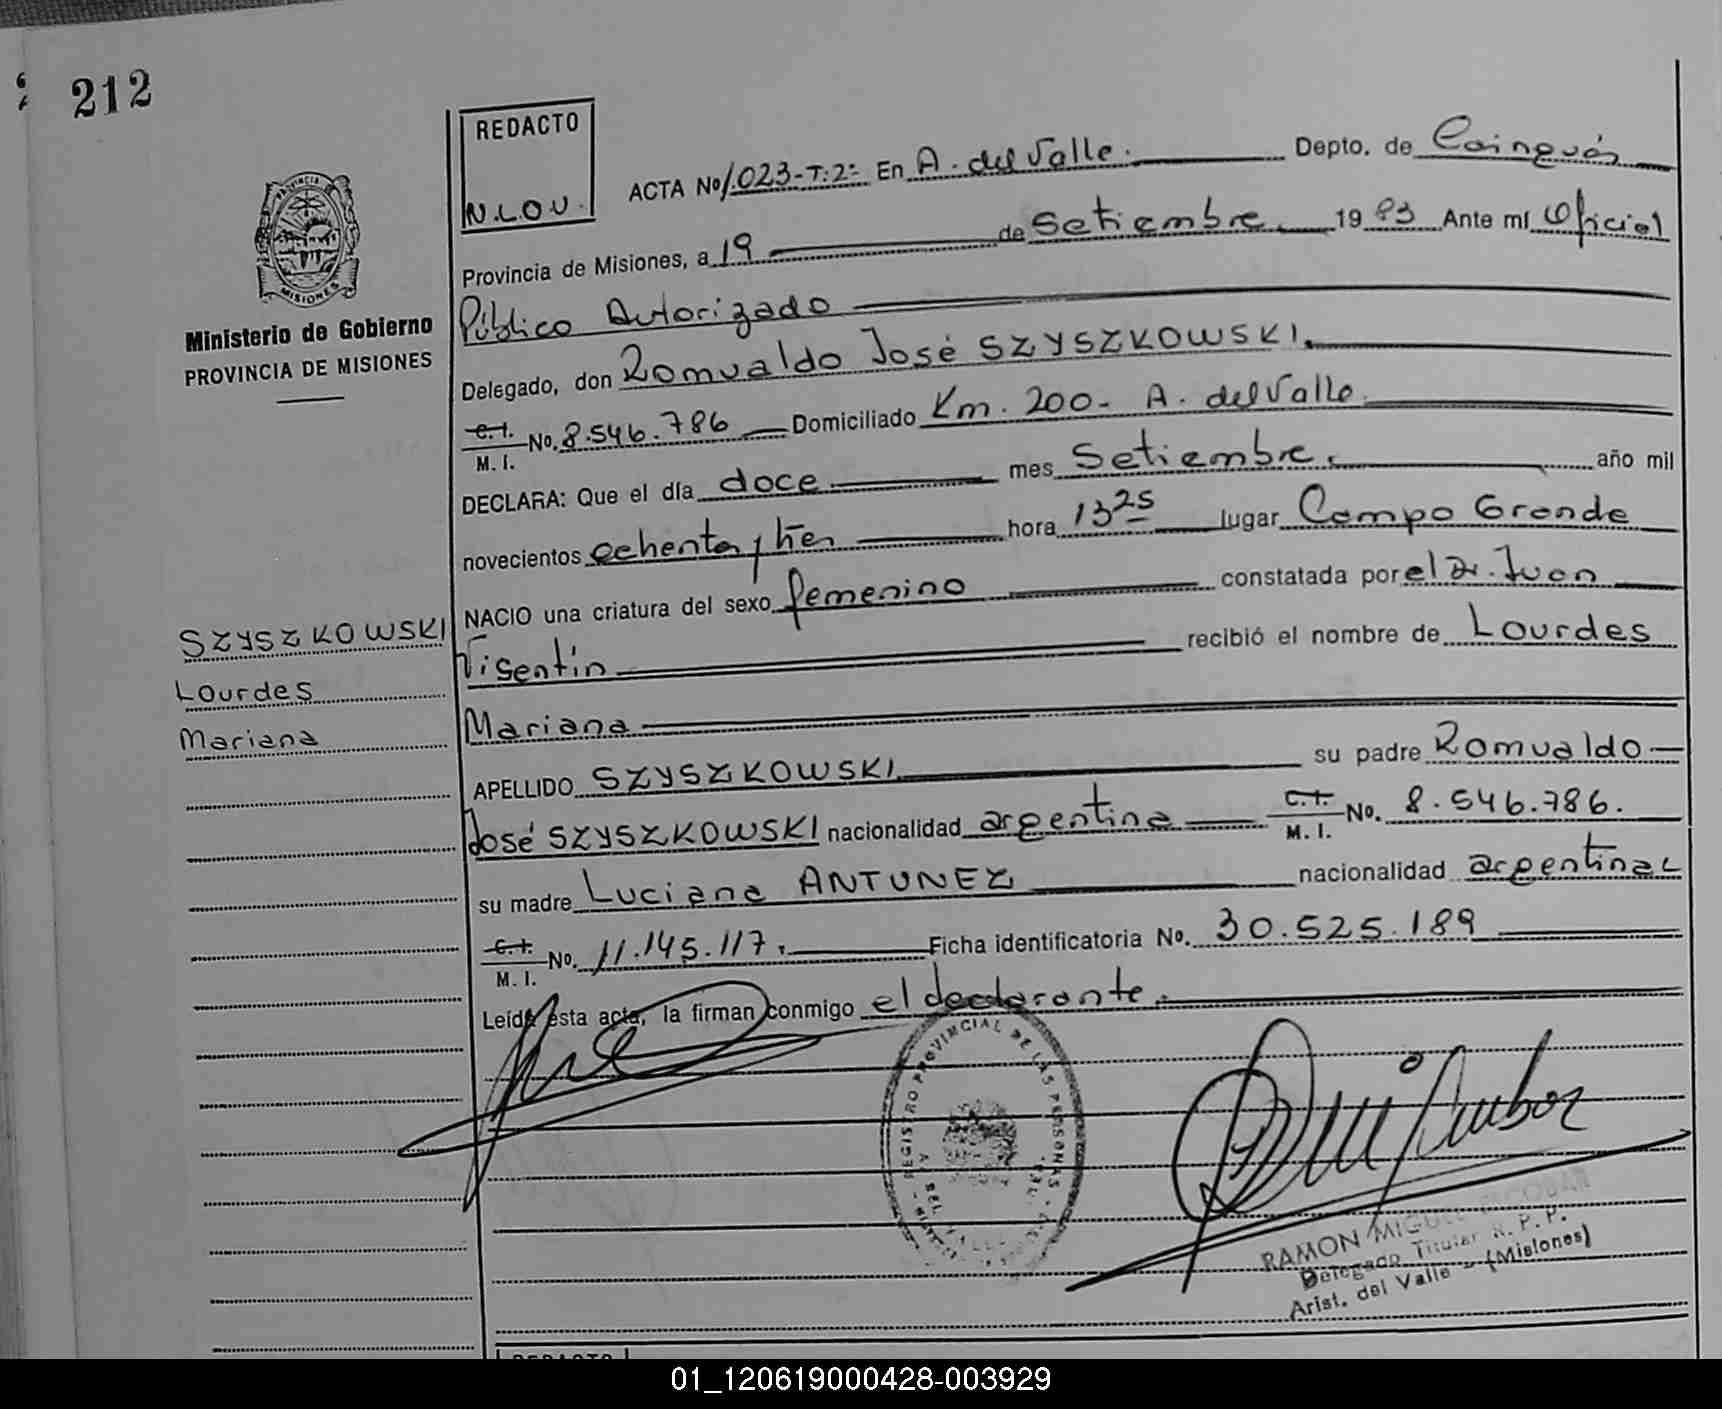 212
REDACTO
N.L.O.V.
ACTA No 1.023-T:2º En A. del Valle. Depto. de Cainguás
Provincia de Misiones, a 19 de Setiembre 1983 Ante mí Oficial
Público Autorizado
Delegado, don Romualdo José SZYSZKOWSKI.
C.I. M. I. No. 8.546.786 Domiciliado Km. 200- A. del Valle
DECLARA: Que el día doce mes Setiembre. año mil
novecientos ochenta y tres hora 13 25 lugar Campo Grande
NACIO una criatura del sexo femenino constatada por el Dr. Juan
Visentín recibió el nombre de Lourdes
Mariana
APELLIDO SZYSZKOWSKI su padre Romualdo
José SZYSZKOWSKI nacionalidad argentina C.I. M. I. No. 8.546.786.
su madre Luciana ANTUNEZ nacionalidad argentina
C.I. M. I. No. 11.145.117. Ficha identificatoria No. 30.525.189
Leída esta acta, la firman conmigo el declarante.
PROVINCIA
MISIONES
Ministerio de Gobierno
PROVINCIA DE MISIONES
SZYSZKOWSKI
Lourdes
Mariana
REGISTRO PROVINCIAL DE LAS PERSONAS
RAMON MIGUEL ESCOBAR
Delegado Titular R. P. P.
Arist. del Valle - (Misiones)
REDACTO
01_120619000428-003929